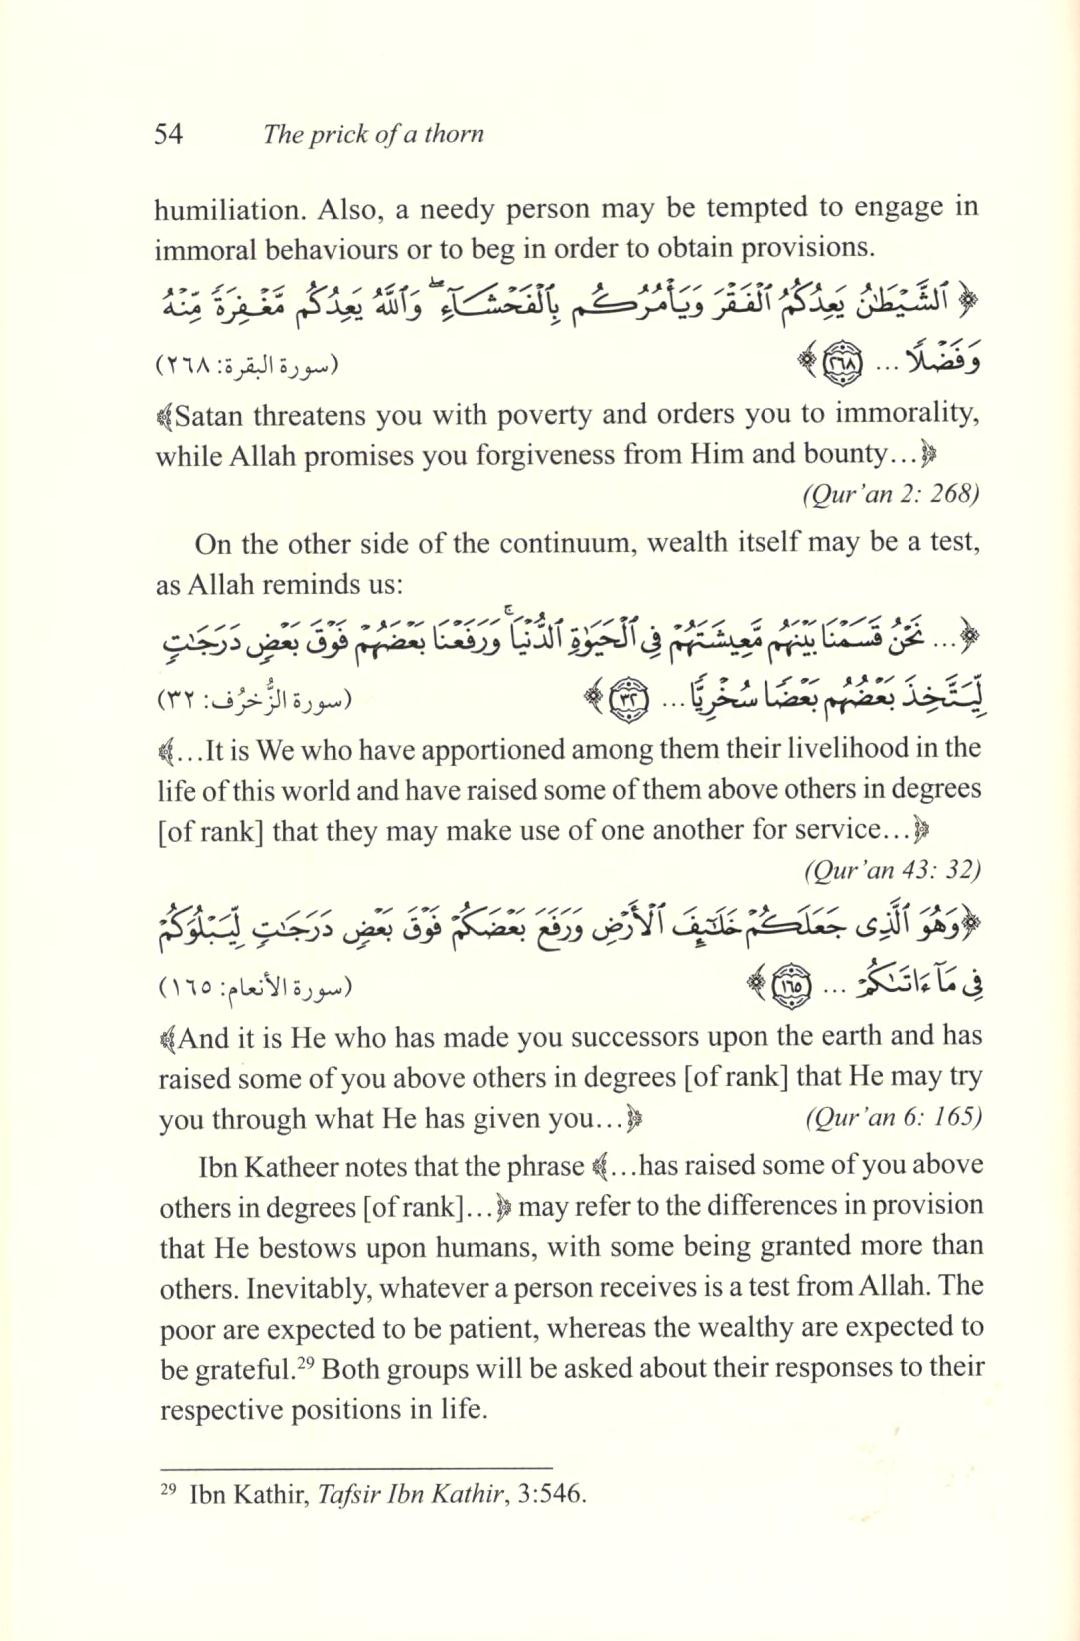 54 The prick of a thorn
humiliation. Also, a needy person may be tempted to engage in
immoral behaviours or to beg in order to obtain provisions.
﴿ ٱلشَّيْطَٰنُ يَعِدُكُمُ ٱلْفَقْرَ وَيَأْمُرُكُم بِٱلْفَحْشَآءِ ۖ وَٱللَّهُ يَعِدُكُم مَّغْفِرَةً مِّنْهُ
وَفَضْلًا ... ٢٦٨ ﴾ (سورة البقرة: ٢٦٨)
﴾Satan threatens you with poverty and orders you to immorality,
while Allah promises you forgiveness from Him and bounty...﴿
(Qur’an 2: 268)
On the other side of the continuum, wealth itself may be a test,
as Allah reminds us:
﴿... نَحْنُ قَسَمْنَا بَيْنَهُم مَّعِيشَتَهُمْ فِى ٱلْحَيَوٰةِ ٱلدُّنْيَا ۚ وَرَفَعْنَا بَعْضَهُمْ فَوْقَ بَعْضٍ دَرَجَٰتٍ
لِّيَتَّخِذَ بَعْضُهُم بَعْضًا سُخْرِيًّا ... ٣٢ ﴾ (سورة الزُّخرُف: ٣٢)
﴾...It is We who have apportioned among them their livelihood in the
life of this world and have raised some of them above others in degrees
[of rank] that they may make use of one another for service...﴿
(Qur’an 43: 32)
﴿وَهُوَ ٱلَّذِى جَعَلَكُمْ خَلَٰٓئِفَ ٱلْأَرْضِ وَرَفَعَ بَعْضَكُمْ فَوْقَ بَعْضٍ دَرَجَٰتٍ لِّيَبْلُوَكُمْ
فِى مَآ ءَاتَىٰكُمْ ... ١٦٥ ﴾ (سورة الأنعام: ١٦٥)
﴾And it is He who has made you successors upon the earth and has
raised some of you above others in degrees [of rank] that He may try
you through what He has given you...﴿ (Qur’an 6: 165)
Ibn Katheer notes that the phrase ﴾...has raised some of you above
others in degrees [of rank]...﴿ may refer to the differences in provision
that He bestows upon humans, with some being granted more than
others. Inevitably, whatever a person receives is a test from Allah. The
poor are expected to be patient, whereas the wealthy are expected to
be grateful.²⁹ Both groups will be asked about their responses to their
respective positions in life.
²⁹ Ibn Kathir, Tafsir Ibn Kathir, 3:546.